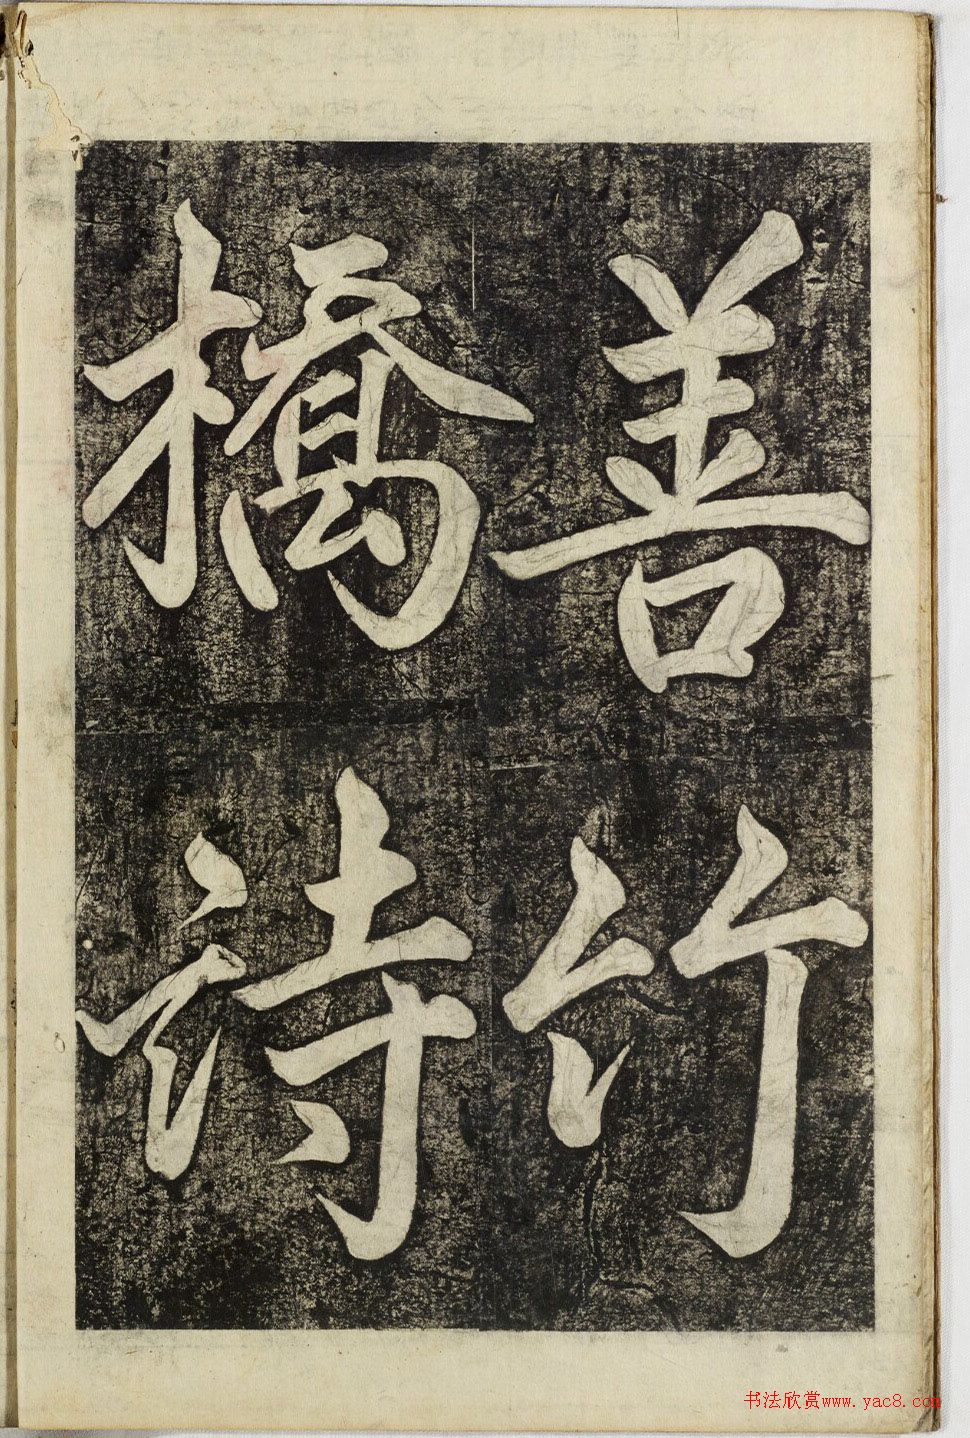 善竹
橋詩
书法欣赏www.yac8.com